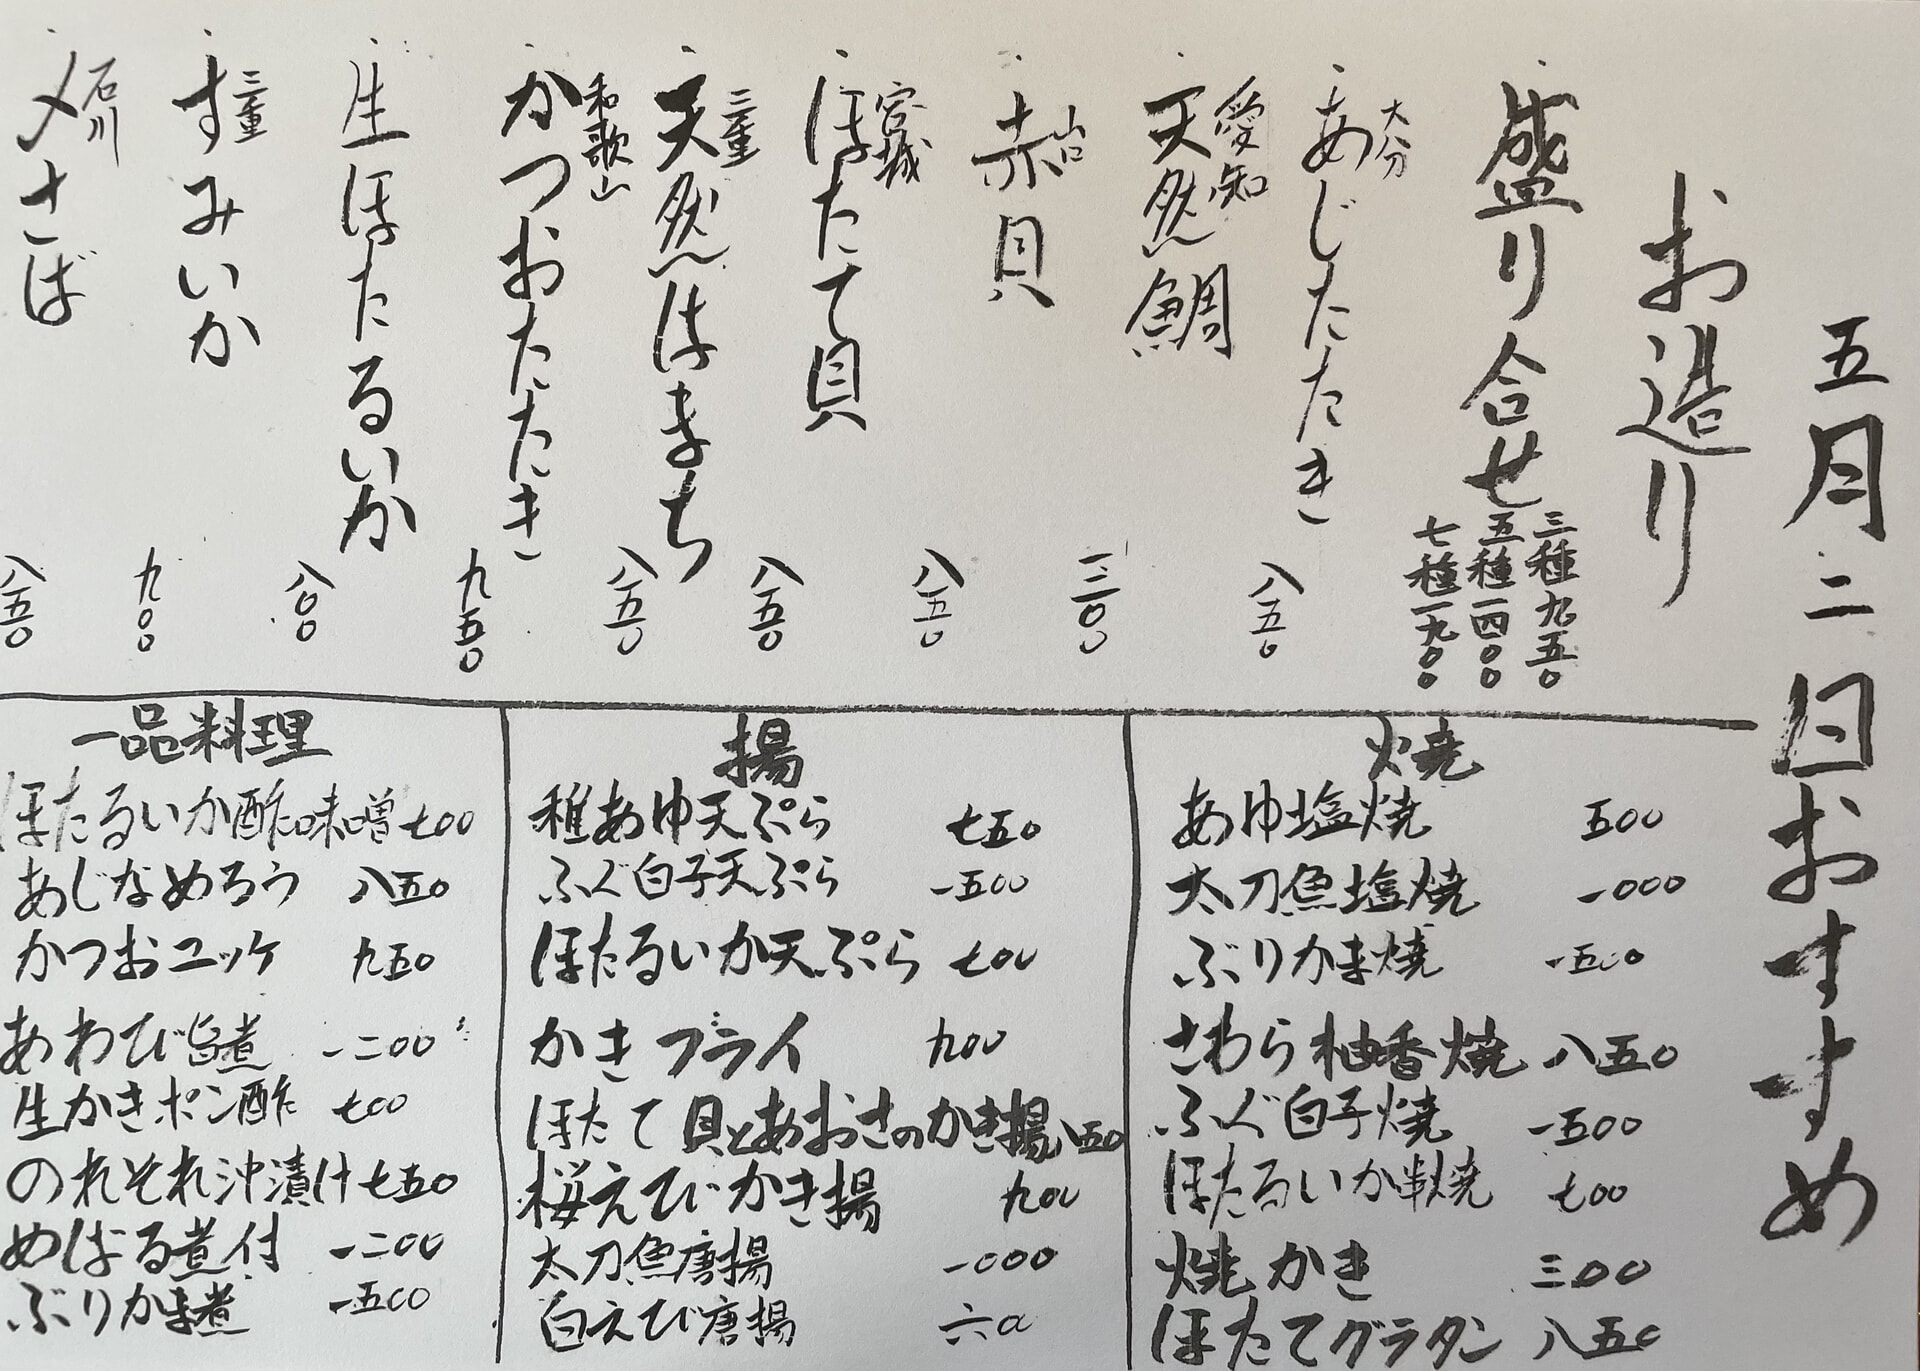 五月二日おすすめ
お造り
盛り合せ
三種九五〇
五種一四〇〇
七種一九〇〇
大分
あじたたき
八五〇
愛知
天然鯛
一二〇〇
山口
赤貝
八五〇
宮城
ほたて貝
八五〇
三重
天然はまち
八五〇
和歌山
かつおたたき
九五〇
生ほたるいか
八〇〇
三重
すみいか
九〇〇
石川
〆さば
八五〇
焼
あゆ塩焼 五〇〇
太刀魚塩焼 一〇〇〇
ぶりかま焼 一五〇〇
さわら柚香焼 八五〇
ふぐ白子焼 一五〇〇
ほたるいか串焼 七〇〇
焼かき 三〇〇
ほたてグラタン 八五〇
揚
稚あゆ天ぷら 七五〇
ふぐ白子天ぷら 一五〇〇
ほたるいか天ぷら 七〇〇
かきフライ 九〇〇
ほたて貝とあおさのかき揚 八五〇
桜えびかき揚 九〇〇
太刀魚唐揚 一〇〇〇
白えび唐揚 六〇〇
一品料理
ほたるいか酢味噌 七〇〇
あじなめろう 八五〇
かつおユッケ 九五〇
あわび旨煮 一二〇〇
生かきポン酢 七〇〇
のれそれ沖漬け 七五〇
めばる煮付 一二〇〇
ぶりかま煮 一五〇〇